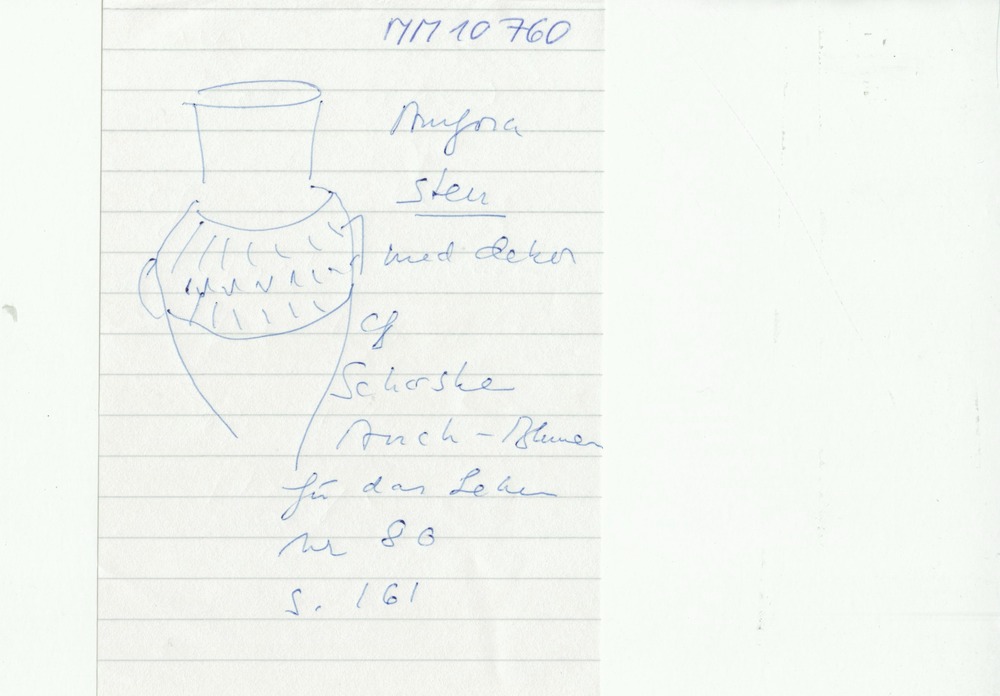 MM 10 760
Amfora
sten
med dekor
cf
Schoske
Anch - Blumen
für das Leben
nr 80
s. 161